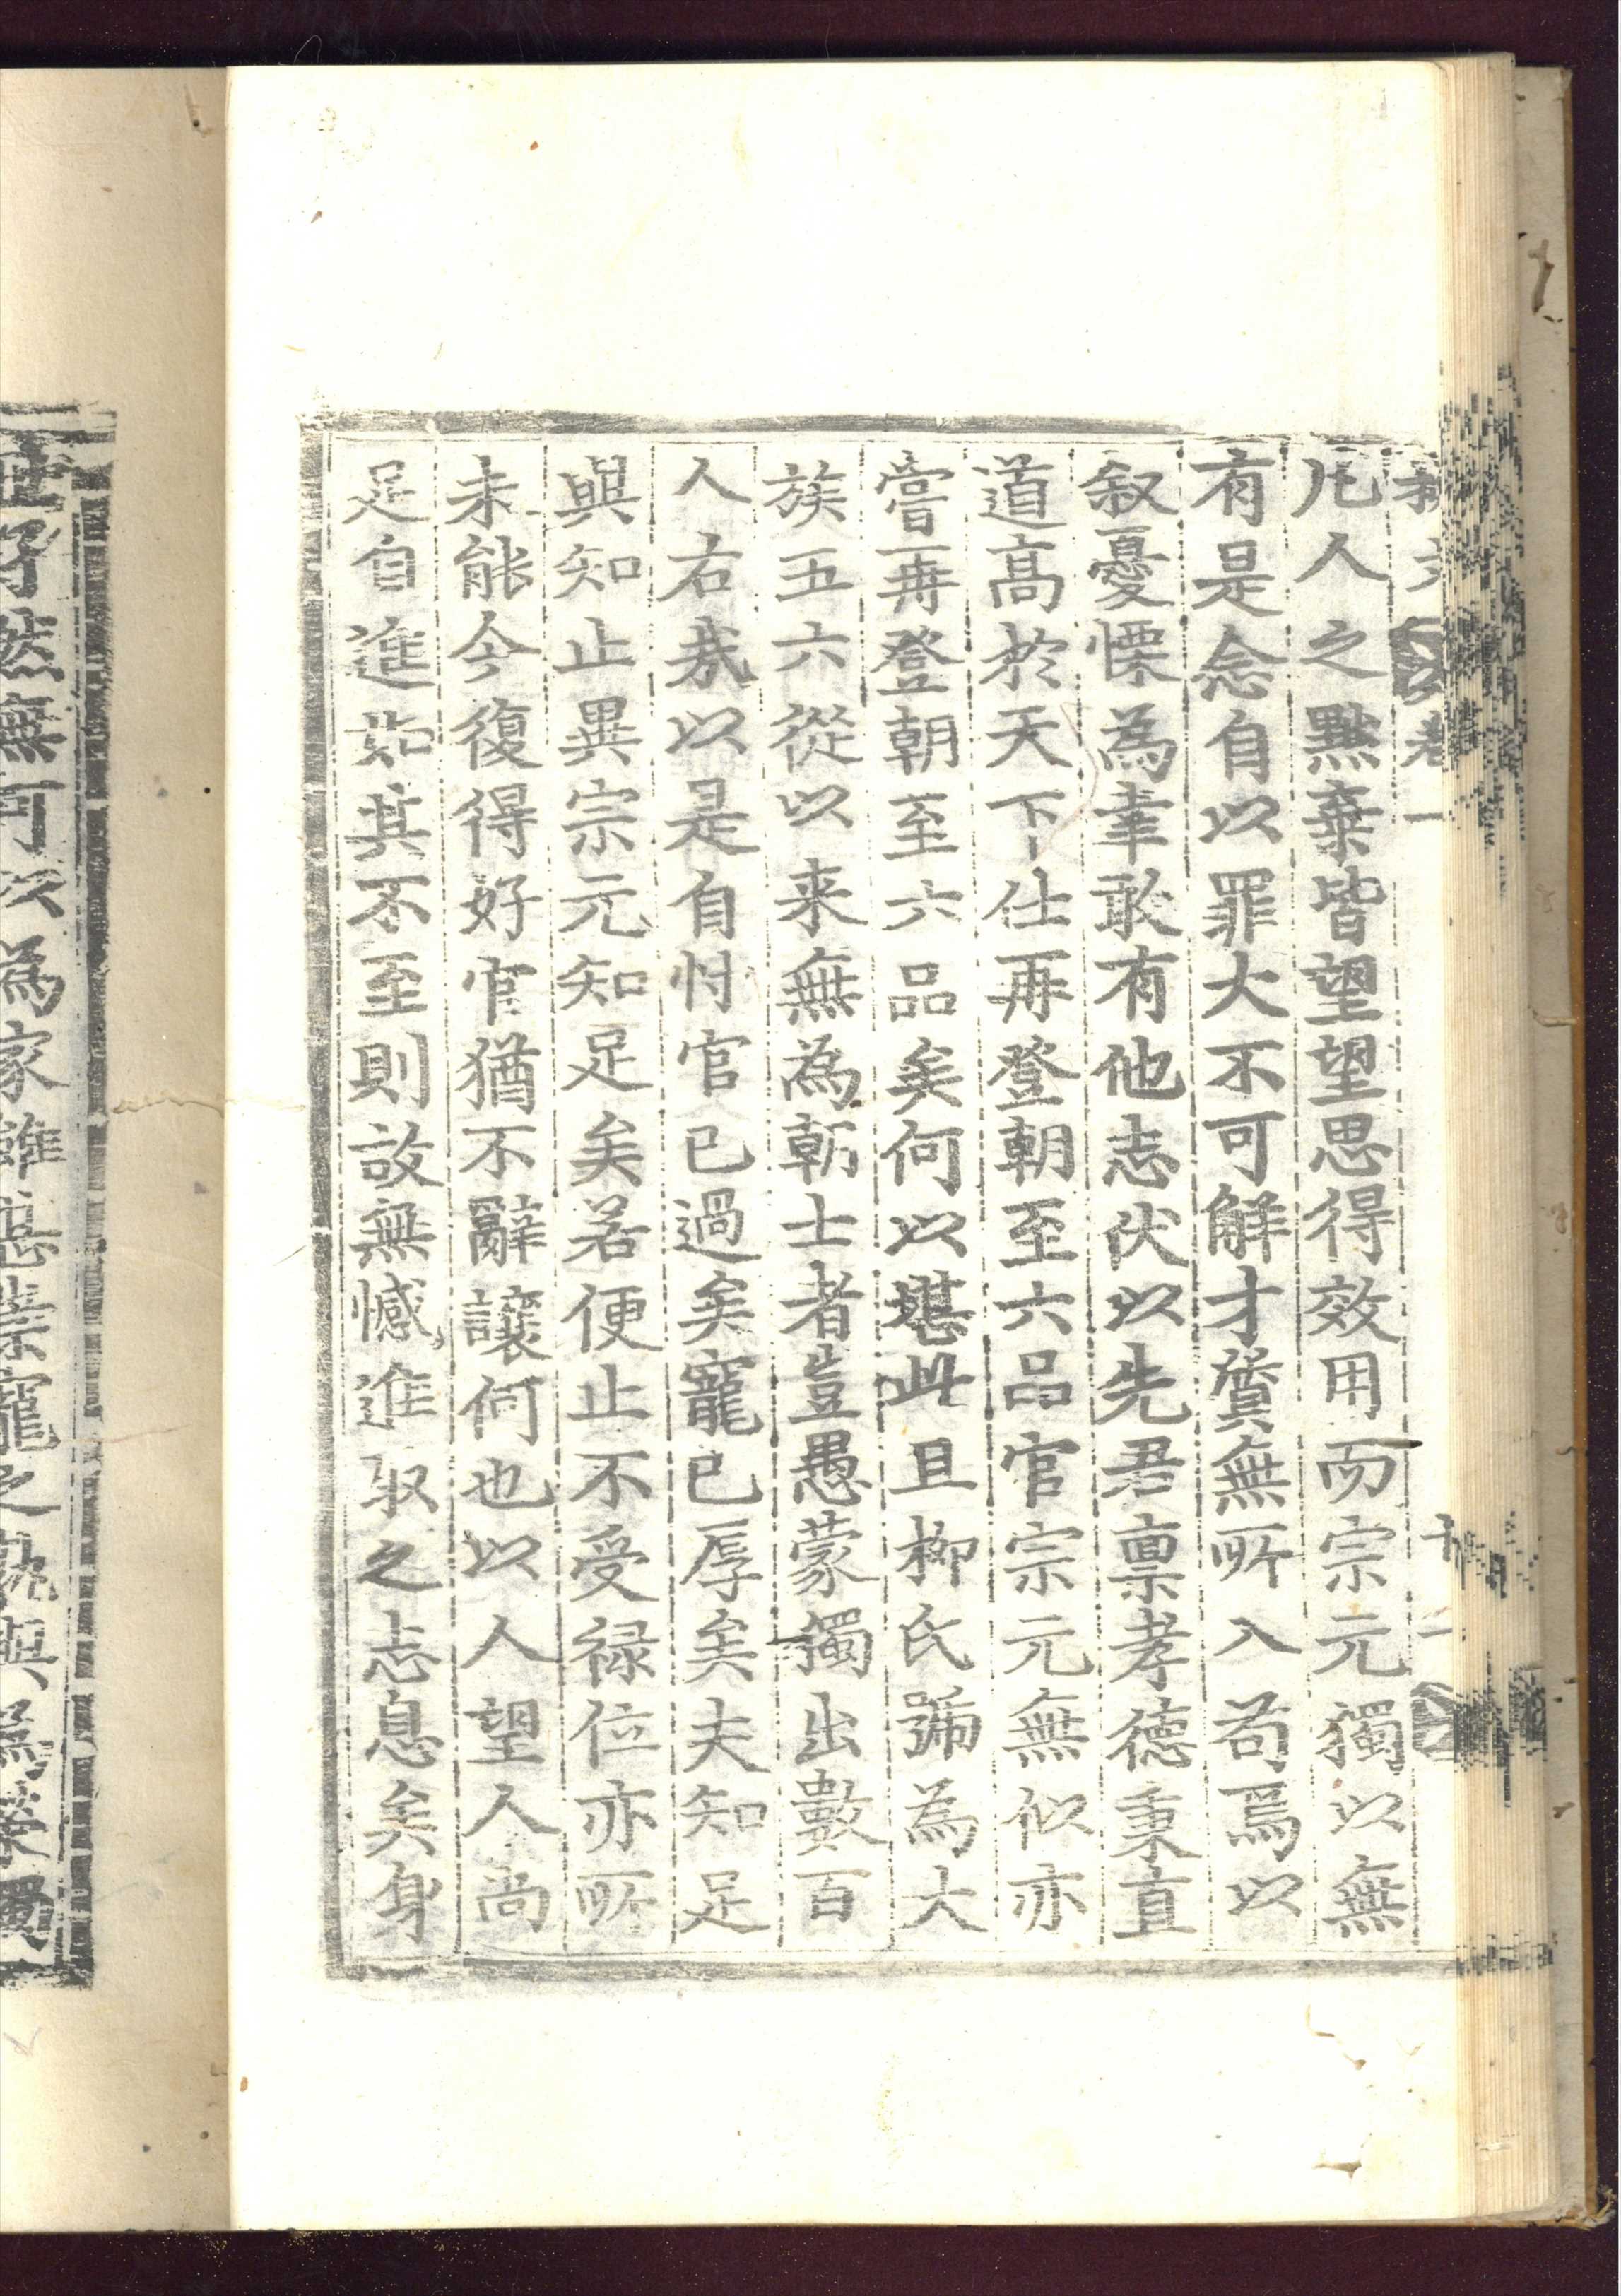 卷一
凡人之黜棄皆望望思得效用而宗元獨以無
有是念自以罪大不可解才質無所入苟焉以
叙憂慄為幸敢有他志伏以先君禀孝德秉直
道高於天下仕再登朝至六品官宗元無似亦
嘗再登朝至六品矣何以堪此且柳氏號為大
族五六從以来無為朝士者豈愚蒙獨出數百
人右哉以是自忖官已過矣寵已厚矣夫知足
與知止異宗元知足矣若便止不受禄位亦所
未能今復得好官猶不辭讓何也以人望人尚
足自進如其不至則故無憾進取之志息矣身
世孑然無可以為家雖甚崇寵之孰與為榮獨